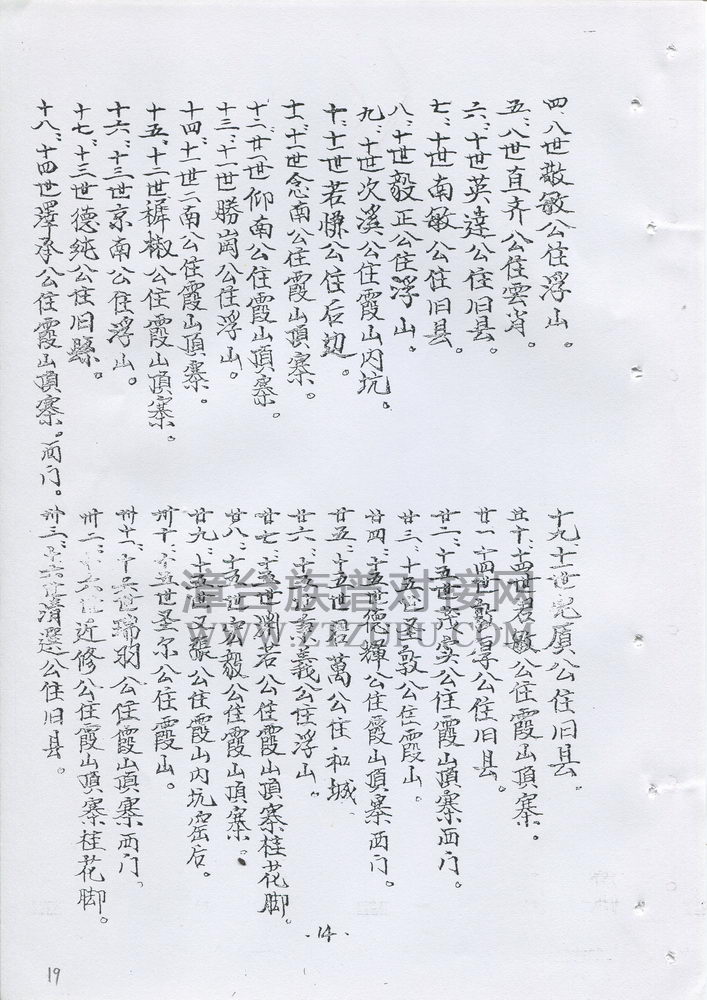 四、八世敬敏公住浮山。
五、八世直齐公住雲肖。
六、十世英達公住旧县。
七、十世南敏公住旧县。
八、十世毅正公住浮山。
九、十世次溪公住霞山内坑。
十、十一世若慷公住后边。
十一、十一世念南公住霞山頂寨。
十二、廿一世仰南公住霞山頂寨。
十三、十一世勝崗公住浮山。
十四、十一世二南公住霞山頂寨。
十五、十二世樨椒公住霞山頂寨。
十六、十三世京南公住浮山。
十七、十三世德純公住旧縣。
十八、十四世澤承公住霞山頂寨。西门。
十九、十一世 厚公住旧县。
廿十、十四世君敏公住霞山頂寨。
廿一、十四世 公住旧县。
廿二、十五世茂实公住霞山頂寨西门。
廿三、十五世圣敦公住霞山。
廿四、十五世德輝公住霞山頂寨西门。
廿五、十五世君萬公住和城
廿六、十五世 義公住浮山。
廿七、十五世渊若公住霞山頂寨桂花脚。
廿八、十五世宏毅公住霞山頂寨。
廿九、十五世圣 公住霞山内坑窑后。
卅十、十五世圣尔公住霞山。
卅十一、十六世瑞羽公住霞山頂寨西门、
卅二、十六世近修公住霞山頂寨桂花脚。
卅三、十六世清選公住旧县。
·14·
19
漳台族谱对接网
WWW.ZTZUPU.COM